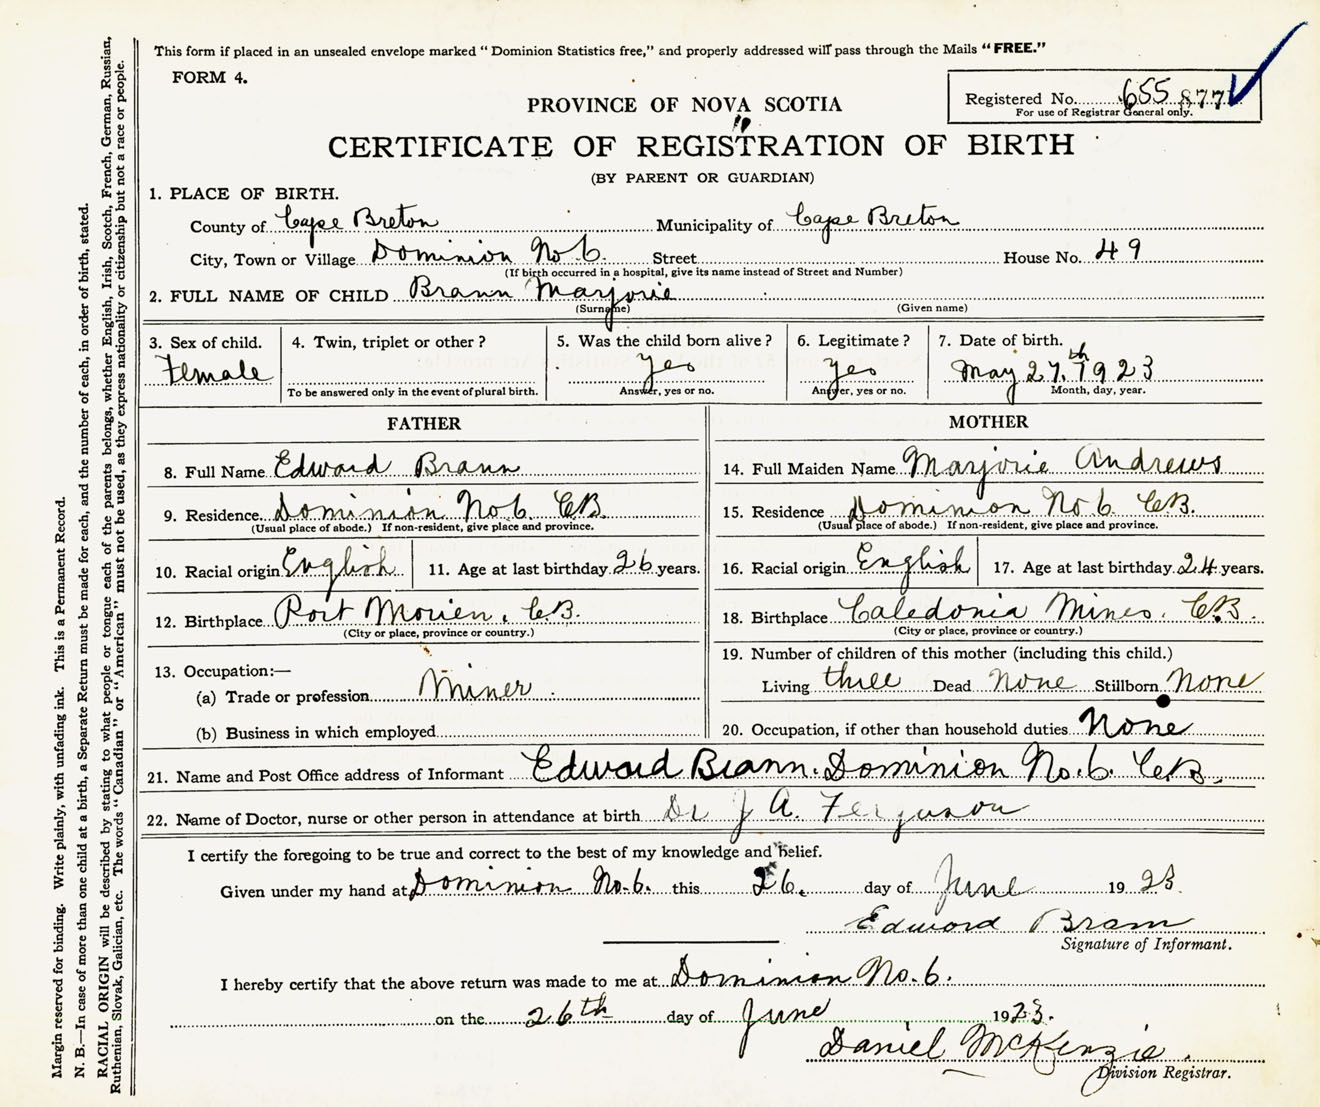 This form if placed in an unsealed envelope marked "Dominion Statistics free," and properly addressed will pass through the Mails "FREE."
FORM 4.
Registered No. 655 877
For use of Registrar General only.
PROVINCE OF NOVA SCOTIA
CERTIFICATE OF REGISTRATION OF BIRTH
(BY PARENT OR GUARDIAN)
1. PLACE OF BIRTH.
County of Cape Breton Municipality of Cape Breton
City, Town or Village Dominion No 6. Street House No. 49
(If birth occurred in a hospital, give its name instead of Street and Number)
2. FULL NAME OF CHILD Brann Marjorie
(Surname) (Given name)
3. Sex of child. 4. Twin, triplet or other? 5. Was the child born alive? 6. Legitimate? 7. Date of birth.
Female Yes Yes May 27th 1923
To be answered only in the event of plural birth. Answer, yes or no. Answer, yes or no. Month, day, year.
FATHER MOTHER
8. Full Name Edward Brann 14. Full Maiden Name Marjorie Andrews
9. Residence Dominion No 6. C.B. 15. Residence Dominion No 6 C.B.
(Usual place of abode.) If non-resident, give place and province. (Usual place of abode.) If non-resident, give place and province.
10. Racial origin English 11. Age at last birthday 26 years. 16. Racial origin English 17. Age at last birthday 24 years.
12. Birthplace Port Morien, C.B. 18. Birthplace Caledonia Mines. C.B.
(City or place, province or country.) (City or place, province or country.)
13. Occupation:— 19. Number of children of this mother (including this child.)
(a) Trade or profession Miner. Living three Dead None Stillborn None
(b) Business in which employed 20. Occupation, if other than household duties None
21. Name and Post Office address of Informant Edward Brann. Dominion No. 6. C.B.
22. Name of Doctor, nurse or other person in attendance at birth Dr J A. Ferguson
I certify the foregoing to be true and correct to the best of my knowledge and belief.
Given under my hand at Dominion No. 6. this 26. day of June 1923.
Edward Brann
Signature of Informant.
I hereby certify that the above return was made to me at Dominion No. 6.
on the 26th day of June 1923.
Daniel McKenzie.
Division Registrar.
Margin reserved for binding. Write plainly, with unfading ink. This is a Permanent Record.
N. B.—In case of more than one child at a birth, a Separate Return must be made for each, and the number of each, in order of birth, stated.
RACIAL ORIGIN will be described by stating to what people or tongue each of the parents belongs, whether English, Irish, Scotch, French, German, Russian,
Ruthenian, Slovak, Galician, etc. The words "Canadian" or "American" must not be used, as they express nationality or citizenship but not a race or people.